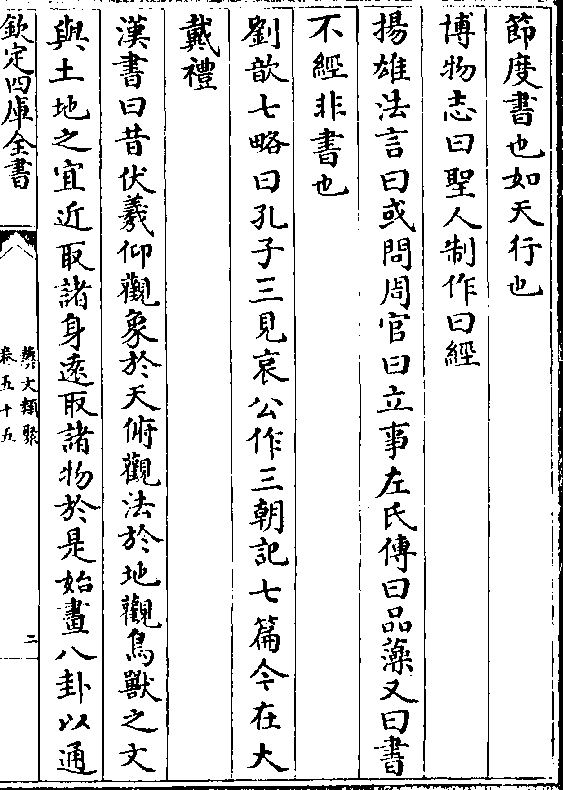 節度書也如天行也
博物志曰聖人制作曰經
揚雄法言曰或問周官曰立事左氏傳曰品藻又曰書
不經非書也
劉歆七略曰孔子三見哀公作三朝記七篇今在大
戴禮
漢書曰昔伏羲仰觀象於天俯觀法於地觀鳥獸之文
與土地之宜近取諸身遠取諸物於是始畫八卦以通
欽定四庫全書
藝文類聚
卷五十五
二